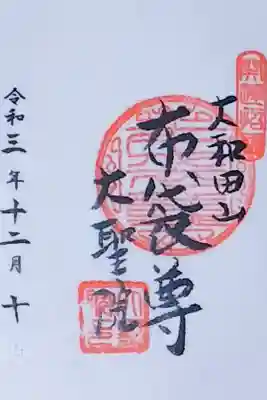 大和田山
布袋尊
大聖院
令和三年十二月十